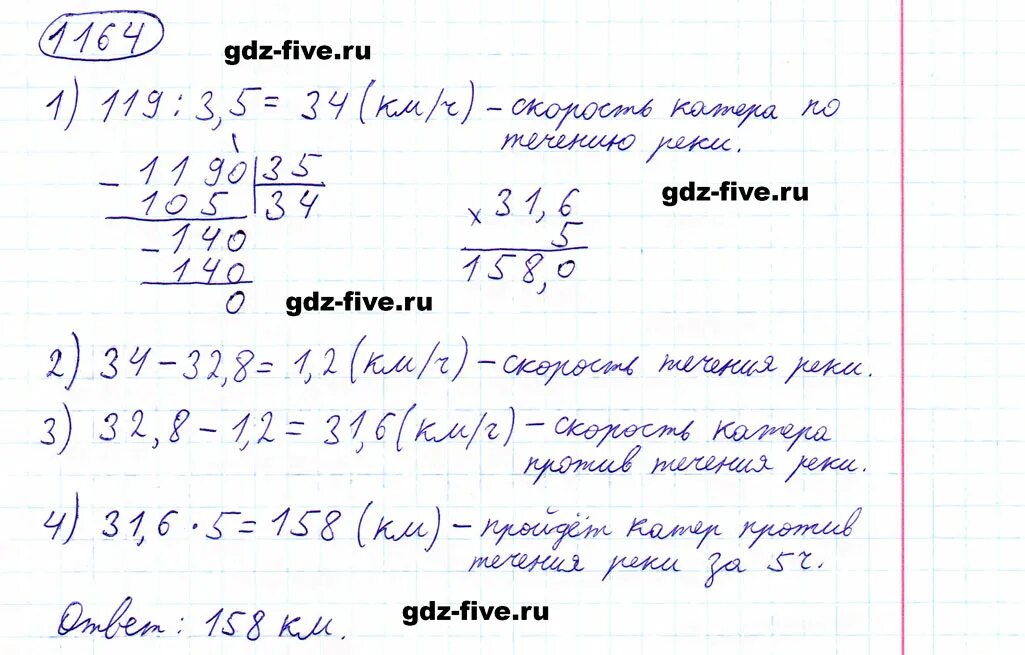 1164
gdz-five.ru
1) 119 : 3,5 = 34 (км/ч) – скорость катера по
течению реки.
– 1190 | 35
105 | 34
– 140
140
0
gdz-five.ru
x 31,6
5
158,0
gdz-five.ru
2) 34 – 32,8 = 1,2 (км/ч) – скорость течения реки.
3) 32,8 – 1,2 = 31,6 (км/ч) – скорость катера
против течения реки.
4) 31,6 · 5 = 158 (км) – пройдёт катер против
течения реки за 5 ч.
gdz-five.ru
Ответ: 158 км.